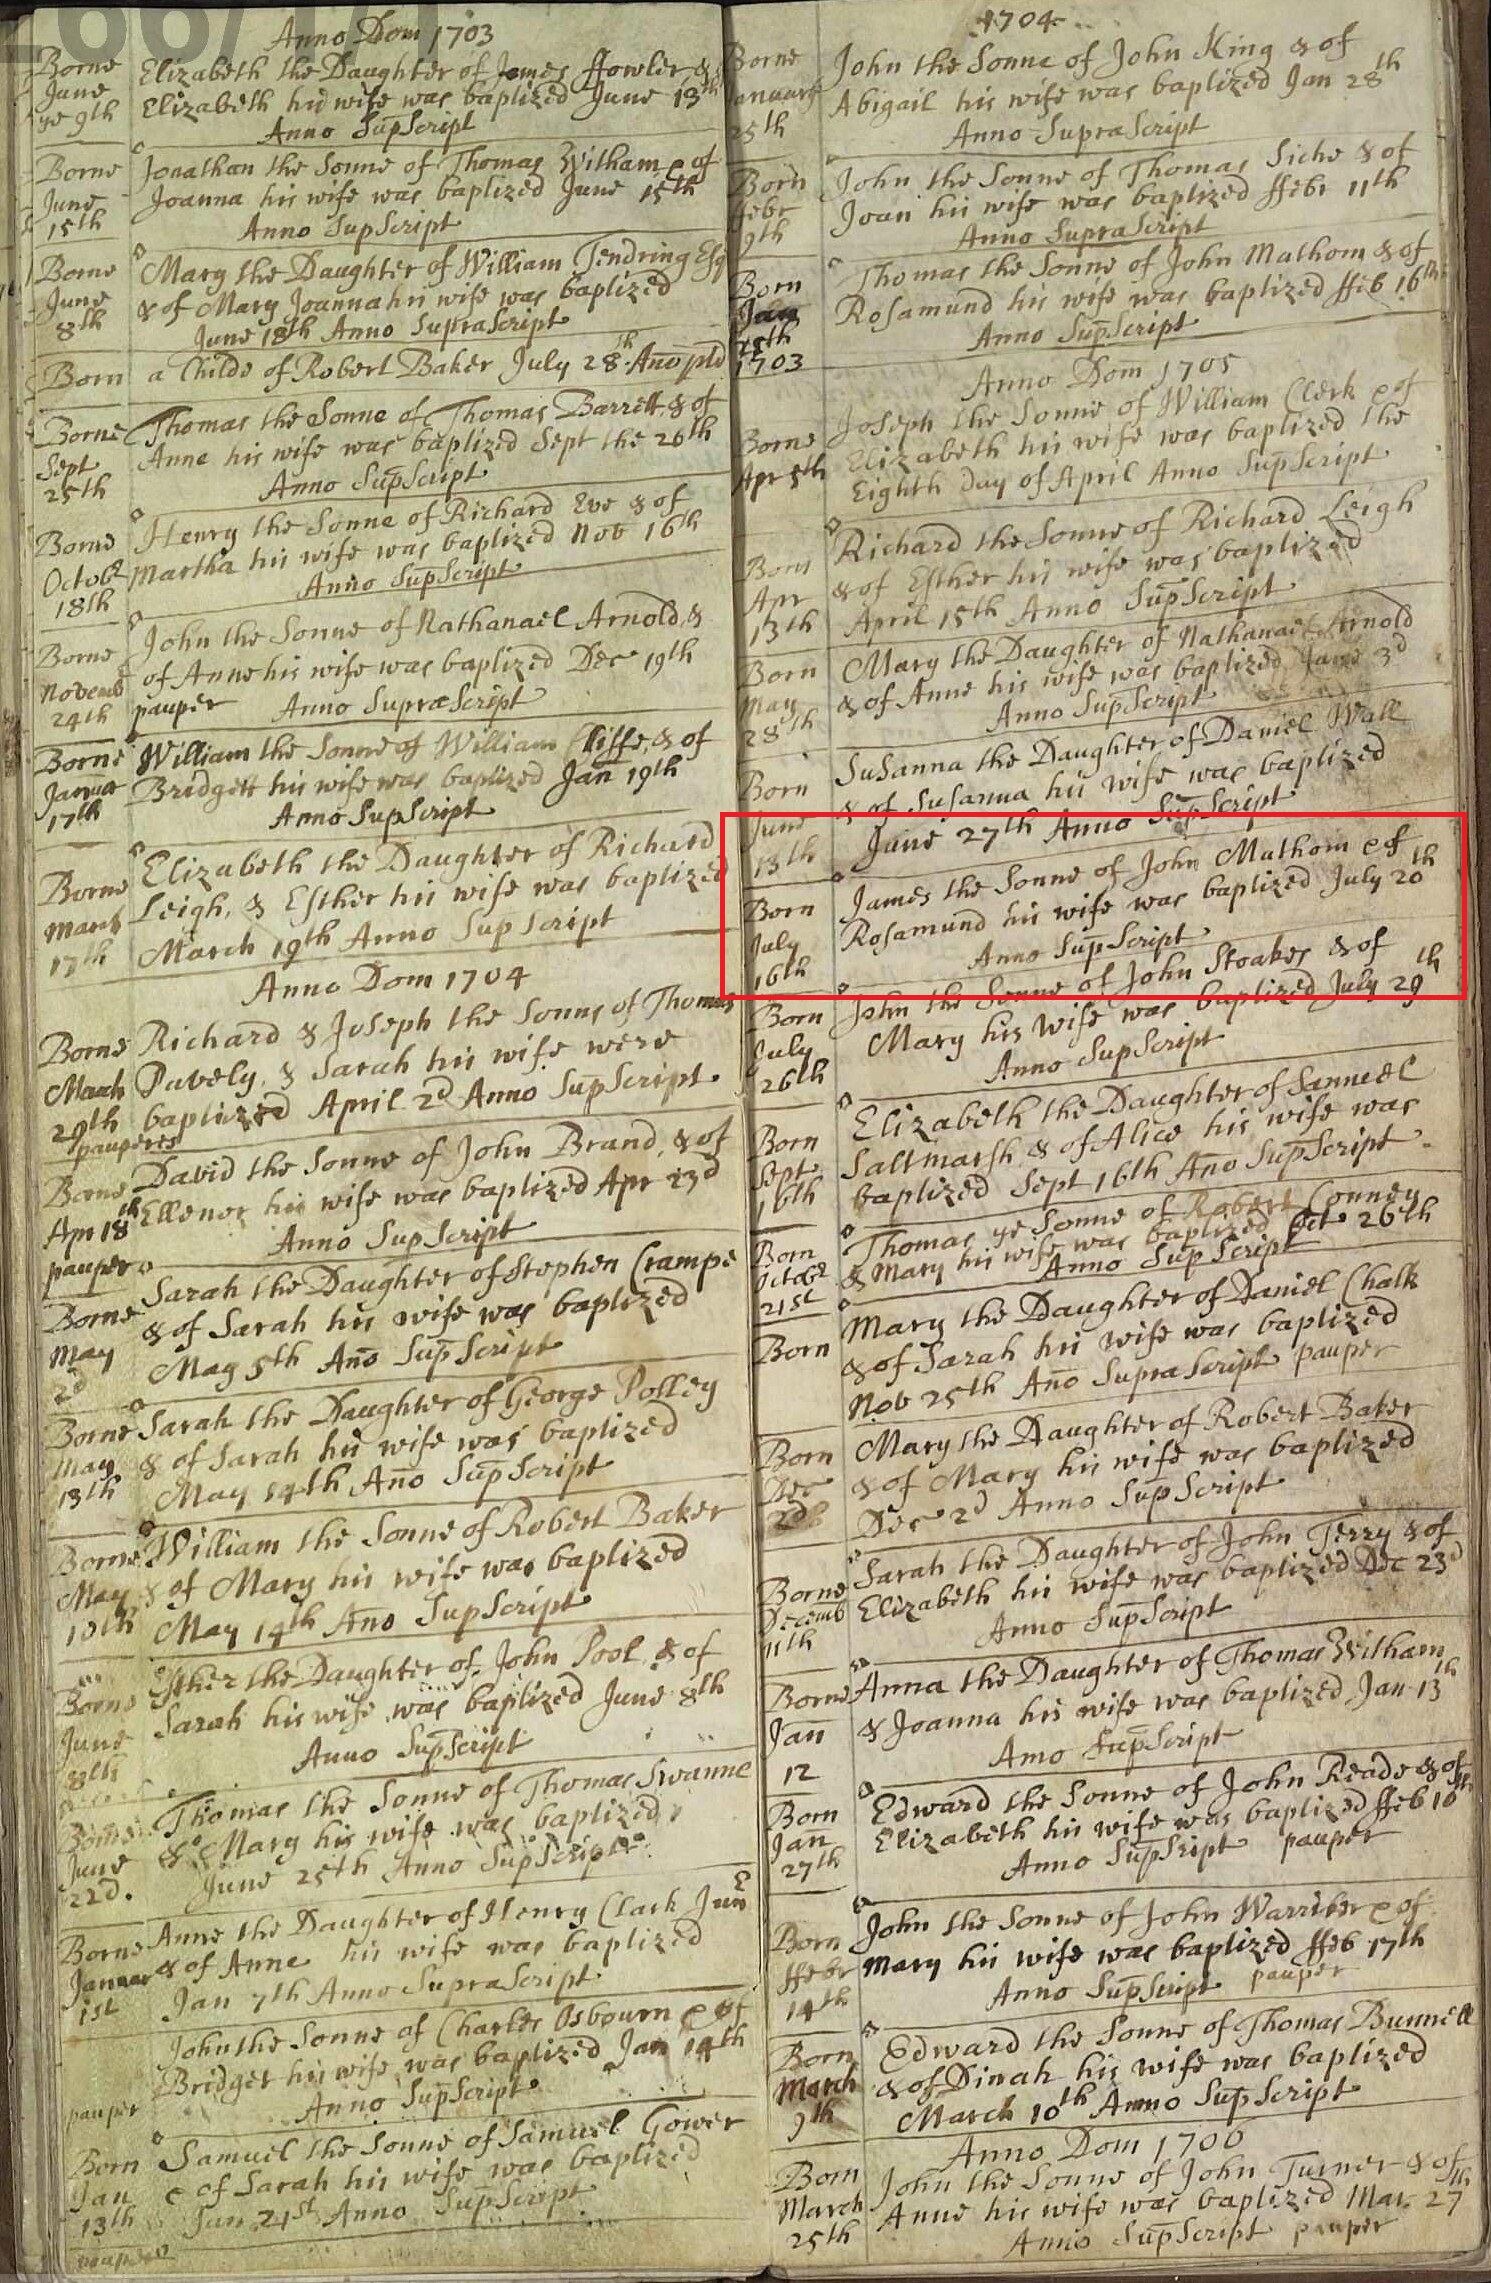 Anno Dom 1703
Borne June ye 9th
Elizabeth the Daughter of James Fowler &
Elizabeth his wife was baptized June 13th
Anno Sup̄Script
Borne June 15th
Jonathan the Sonne of Thomas Witham & of
Joanna his wife was baptized June 15th
Anno SupScript
Borne June 8th
Mary the Daughter of William Tendring Esq
& of Mary Joanna his wife was baptized
June 18th Anno SupraScript
Born a Childe of Robert Baker July 28th Ano p̄ld
Borne Sept 25th
Thomas the Sonne of Thomas Barrett & of
Anne his wife was baptized Sept the 26th
Anno Sup̄Script
Borne Octob 18th
Henry the Sonne of Richard Eve & of
Martha his wife was baptized Nov 16th
Anno SupScript
Borne Novemb 24th
John the Sonne of Nathanael Arnold &
of Anne his wife was baptized Dec 19th
pauper Anno SupraScript
Borne Januar 17th
William the Sonne of William Cliffe & of
Bridgett his wife was baptized Jan 19th
Anno SupScript
Borne March 17th
Elizabeth the Daughter of Richard
Leigh, & Esther his wife was baptized
March 19th Anno SupScript
Anno Dom 1704
Borne March 29th pauperes
Richard & Joseph the Sonns of Thomas
Pavely & Sarah his wife were
baptized April 2d Anno Sup̄Script
Borne Apr 18th pauper
David the Sonne of John Brand, & of
Ellenor his wife was baptized Apr 23d
Anno SupScript
Borne May 2d
Sarah the Daughter of Stephen Crampe
& of Sarah his wife was baptized
May 5th Ano Sup̄Script
Borne May 13th
Sarah the Daughter of George Polley
& of Sarah his wife was baptized
May 14th Ano Sup̄Script
Borne May 10th
William the Sonne of Robert Baker
& of Mary his wife was baptized
May 14th Ano SupScript
Borne June 8th
Esther the Daughter of John Pool & of
Sarah his wife was baptized June 8th
Anno Sup̄Script
Borne June 22d.
Thomas the Sonne of Thomas Swanne
& Mary his wife was baptized
June 25th Anno SupScript
Borne Januar 1st
Anne the Daughter of Henry Clark Junr
& of Anne his wife was baptized
Jan 7th Anno SupraScript
John the Sonne of Charles Osbourn & of
Bridget his wife was baptized Jan 14th
pauper Anno SupScript
Born Jan 13th
Samuel the Sonne of Samuel Gower
& of Sarah his wife was baptized
Jan 21st Anno SupScript
1704
Borne January 25th
John the Sonne of John King & of
Abigail his wife was baptized Jan 28th
Anno SupraScript
Born Febr 9th
John the Sonne of Thomas Siche & of
Joan his wife was baptized ffebr 11th
Anno SupraScript
Born Jan 1703
Thomas the Sonne of John Mathom & of
Rosamund his wife was baptized ffeb 16th
Anno Sup̄Script
Anno Dom 1705
Borne Apr 5th
Joseph the Sonne of William Clerk & of
Elizabeth his wife was baptized the
Eighth Day of April Anno SupScript
Born Apr 13th
Richard the Sonne of Richard Leigh
& of Esther his wife was baptized
April 15th Anno Sup̄Script
Born May 28th
Mary the Daughter of Nathanael Arnold
& of Anne his wife was baptized June 3d
Anno SupScript
Born June 13th
Susanna the Daughter of Daniel Wall
& of Susanna his wife was baptized
June 27th Anno Sup̄Script
Born July 16th
James the Sonne of John Mathom & of
Rosamund his wife was baptized July 20th
Anno Sup̄Script
Born July 26th
John the Sonne of John Stoakes & of
Mary his Wife was baptized July 29th
Anno SupScript
Born Sept 16th
Elizabeth the Daughter of Samuel
Saltmarsh & of Alice his wife was
baptized Sept 16th Ano Sup̄Script
Born October 21st
Thomas ye Sonne of Robert Conney
& Mary his wife was baptized Oct 26th
Anno SupScript
Born
Mary the Daughter of Daniel Chalk
& of Sarah his wife was baptized
Nov 25th Ano SupraScript pauper
Born Dec 2d
Mary the Daughter of Robert Baker
& of Mary his wife was baptized
Dec 2d Anno Sup̄Script
Borne Decemb 11th
Sarah the Daughter of John Terry & of
Elizabeth his wife was baptized Dec 23d
Anno SupScript
Borne Jan 12
Anna the Daughter of Thomas Witham
& Joanna his wife was baptized Jan 13th
Anno Sup̄Script
Born Jan 27th
Edward the Sonne of John Reade & of
Elizabeth his wife was baptized ffeb 10th
Anno SupScript pauper
Born ffebr 14th
John the Sonne of John Warriber & of
Mary his wife was baptized ffeb 17th
Anno Sup̄Script pauper
Born March 9th
Edward the Sonne of Thomas Bunnell
& of Dinah his wife was baptized
March 10th Anno SupScript
Anno Dom 1706
Born March 25th
John the Sonne of John Turner & of
Anne his wife was baptized Mar 27th
Anno SupScript pauper